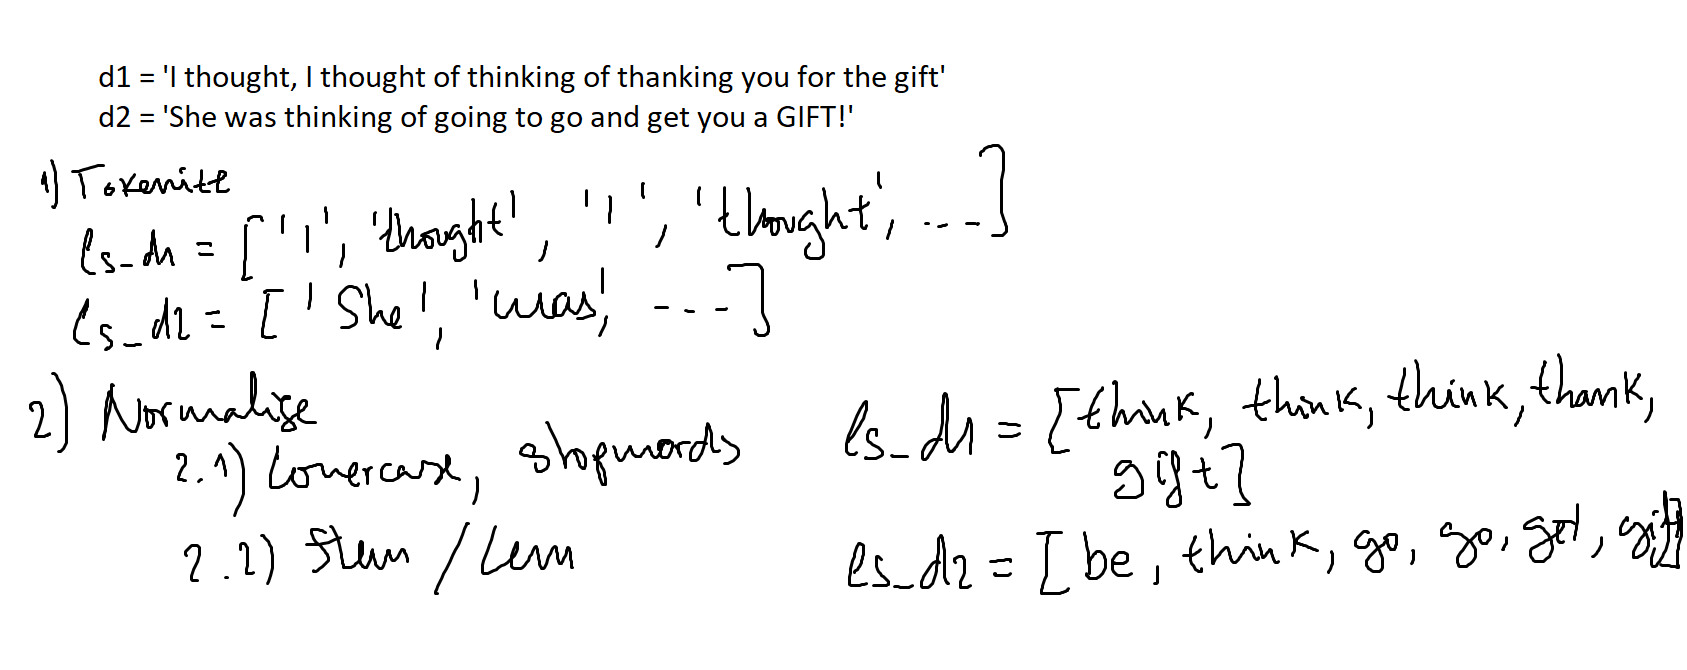 d1 = 'I thought, I thought of thinking of thanking you for the gift'
d2 = 'She was thinking of going to go and get you a GIFT!'
1) Tokenize
ls_d1 = ['I', 'thought', 'I', 'thought', ...]
ls_d2 = ['She', 'was', ...]
2) Normalise
2.1) Lowercase, stopwords
2.2) Stem / Lem
ls_d1 = [think, think, think, thank,
gift]
ls_d2 = [be, think, go, go, get, gift]